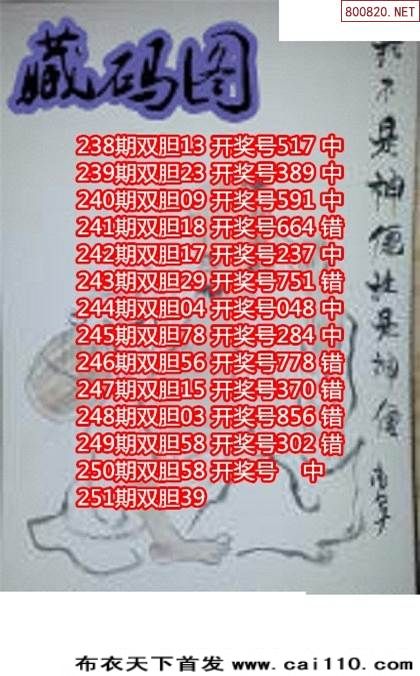 800820.NET
藏码图
238期双胆13 开奖号517 中
239期双胆23 开奖号389 中
240期双胆09 开奖号591 中
241期双胆18 开奖号664 错
242期双胆17 开奖号237 中
243期双胆29 开奖号751 错
244期双胆04 开奖号048 中
245期双胆78 开奖号284 中
246期双胆56 开奖号778 错
247期双胆15 开奖号370 错
248期双胆03 开奖号856 错
249期双胆58 开奖号302 错
250期双胆58 开奖号 中
251期双胆39
不是神仙胜是神仙
布衣天下首发 www.cai110.com